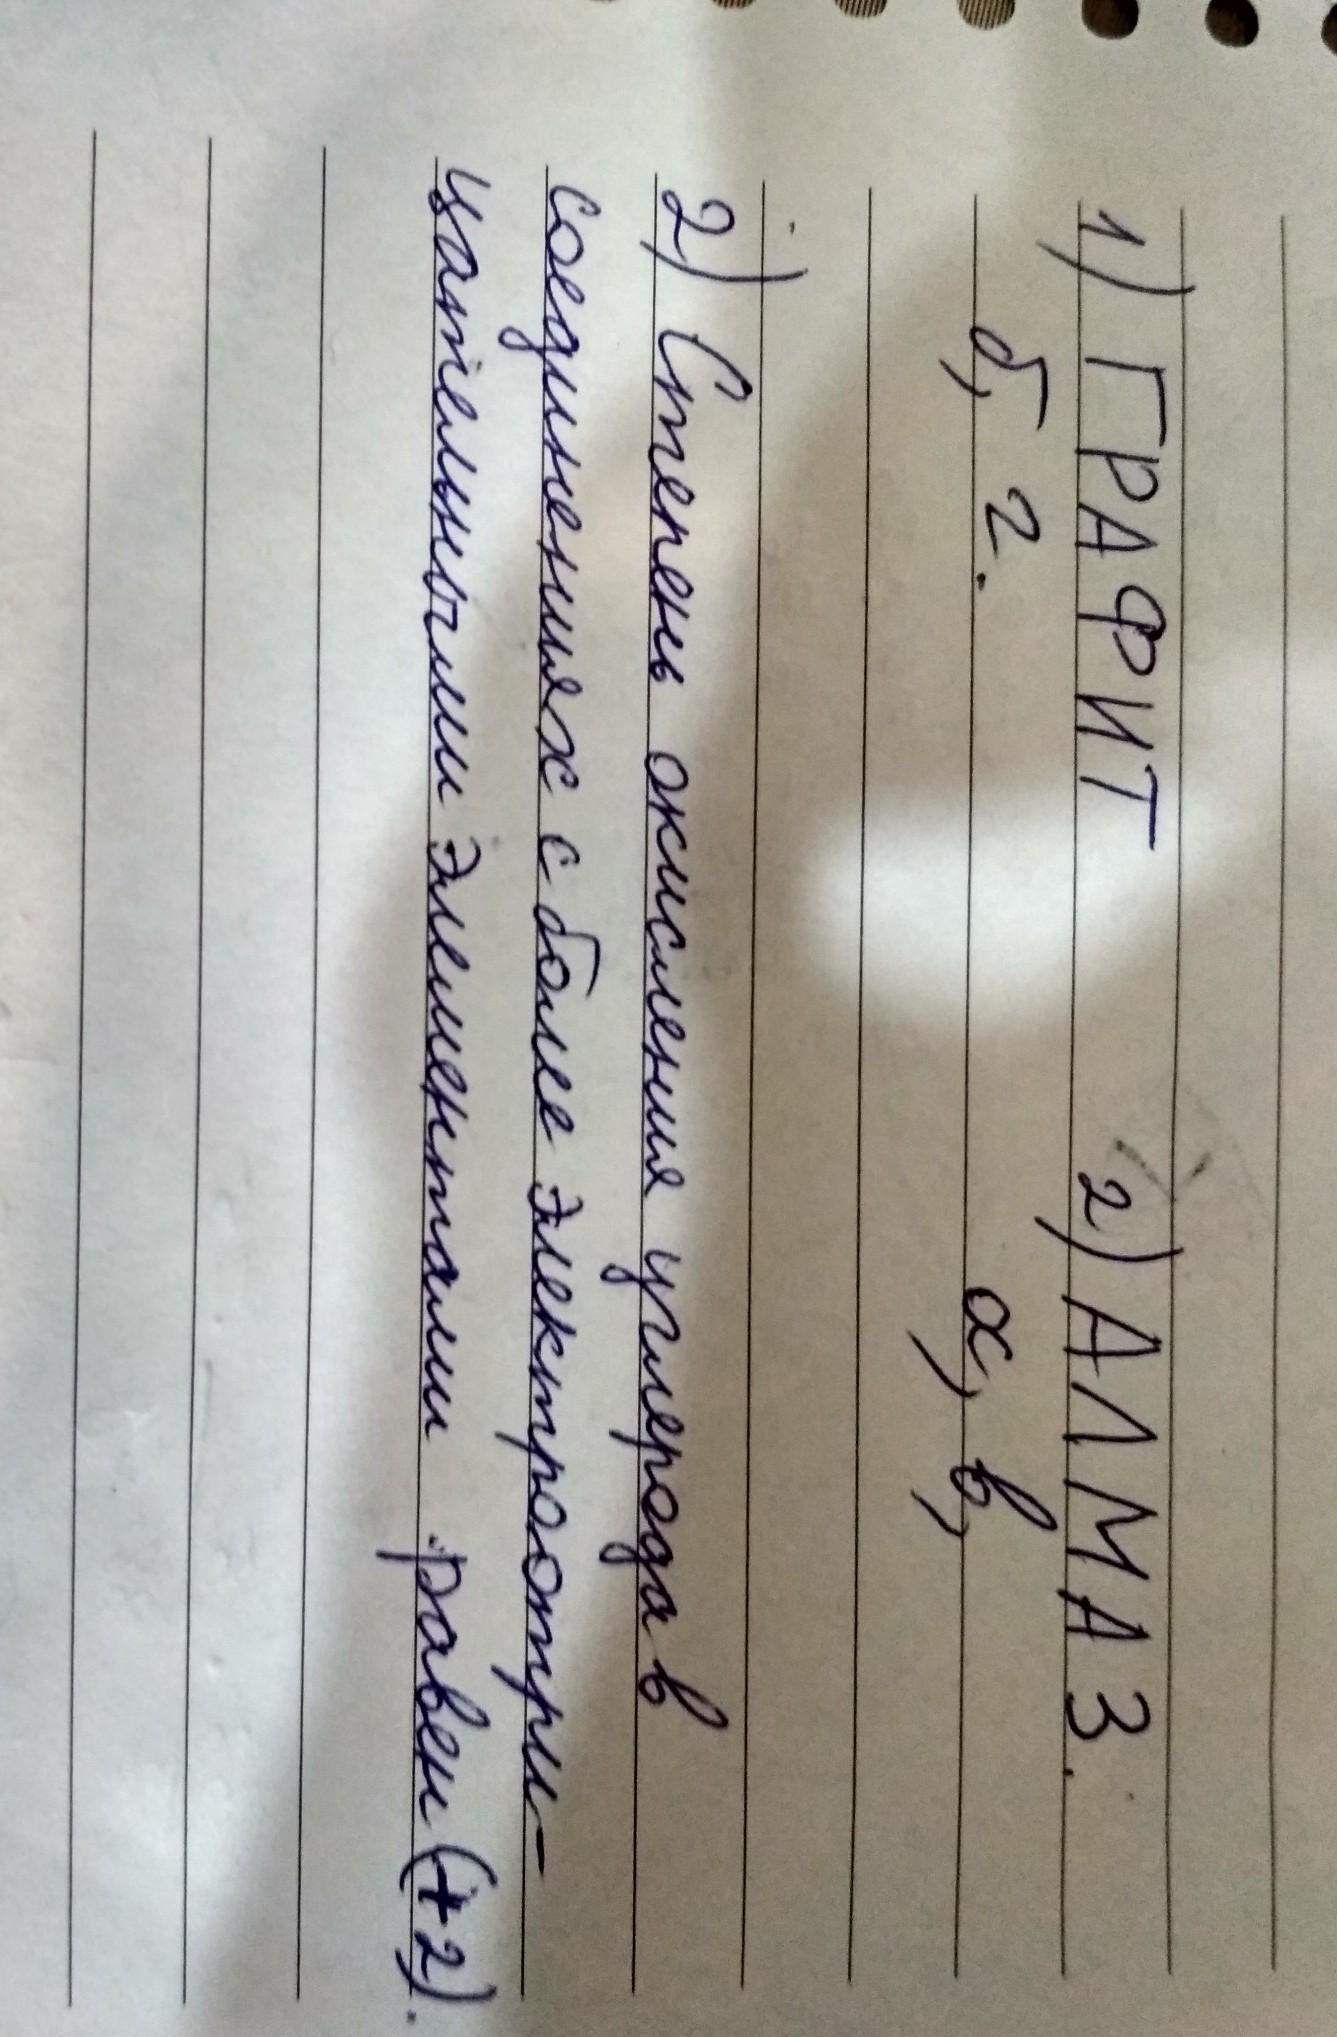 1) ГРАФИТ 2) АЛМАЗ.
б, г. а, в,
2) Степень окисления углерода в
соединениях с более электроотри-
цательными элементами равен (+2).